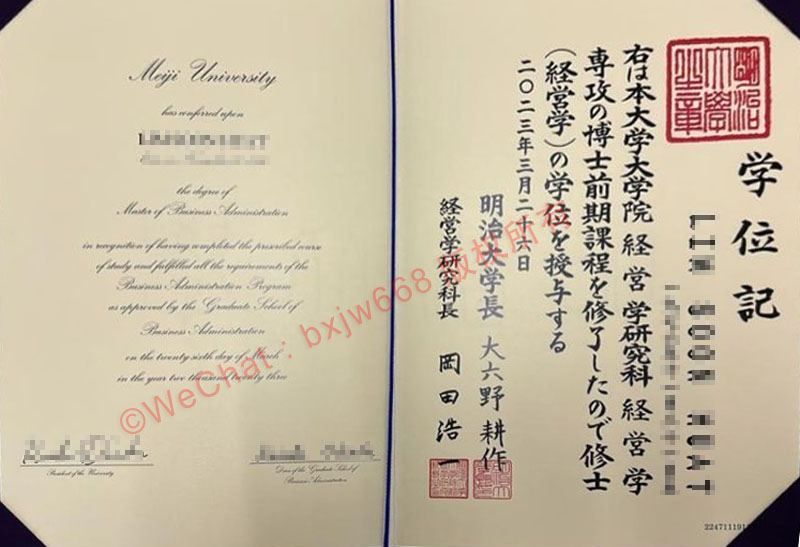 Meiji University
has conferred upon
the degree of
Master of Business Administration
in recognition of having completed the prescribed course
of study and fulfilled all the requirements of the
Business Administration Program
as approved by the Graduate School of
Business Administration
on the twenty sixth day of March
in the year two thousand twenty three
President of the University
Dean of the Graduate School of
Business Administration
明治
大學
之章
学位記
右は本大学大学院経営学研究科経営学
専攻の博士前期課程を修了したので修士
(経営学)の学位を授与する
二〇二三年三月二十六日
明治大学長 大六野耕作
経営学研究科長 岡田浩一
©WeChat: bxjw668 版权所有